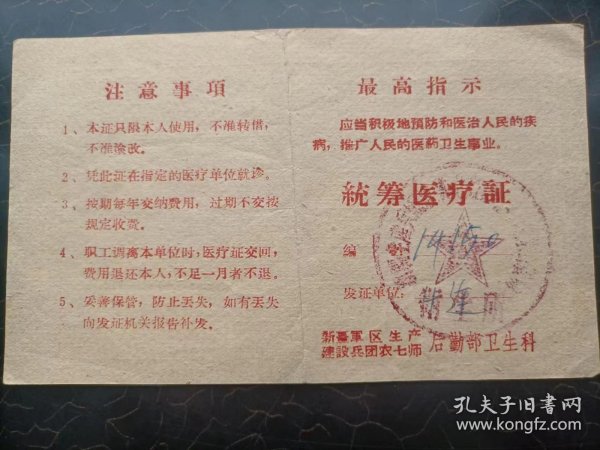 注意事項
1、本证只限本人使用，不准转借，
不准塗改。
2、凭此证在指定的医疗单位就诊。
3、按期每年交纳费用，过期不交按
规定收费。
4、职工调离本单位时，医疗证交囬，
费用退还本人，不足一月者不退。
5、妥善保管，防止丟失，如有丟失
向发证机关报告补发。
最高指示
应当积极地預防和医治人民的疾
病，推广人民的医药卫生事业。
統筹医疗証
編
发証单位：
新疆軍区生产
建設兵团农七师 后勤部卫生科
孔夫子旧书网
www.kongfz.com